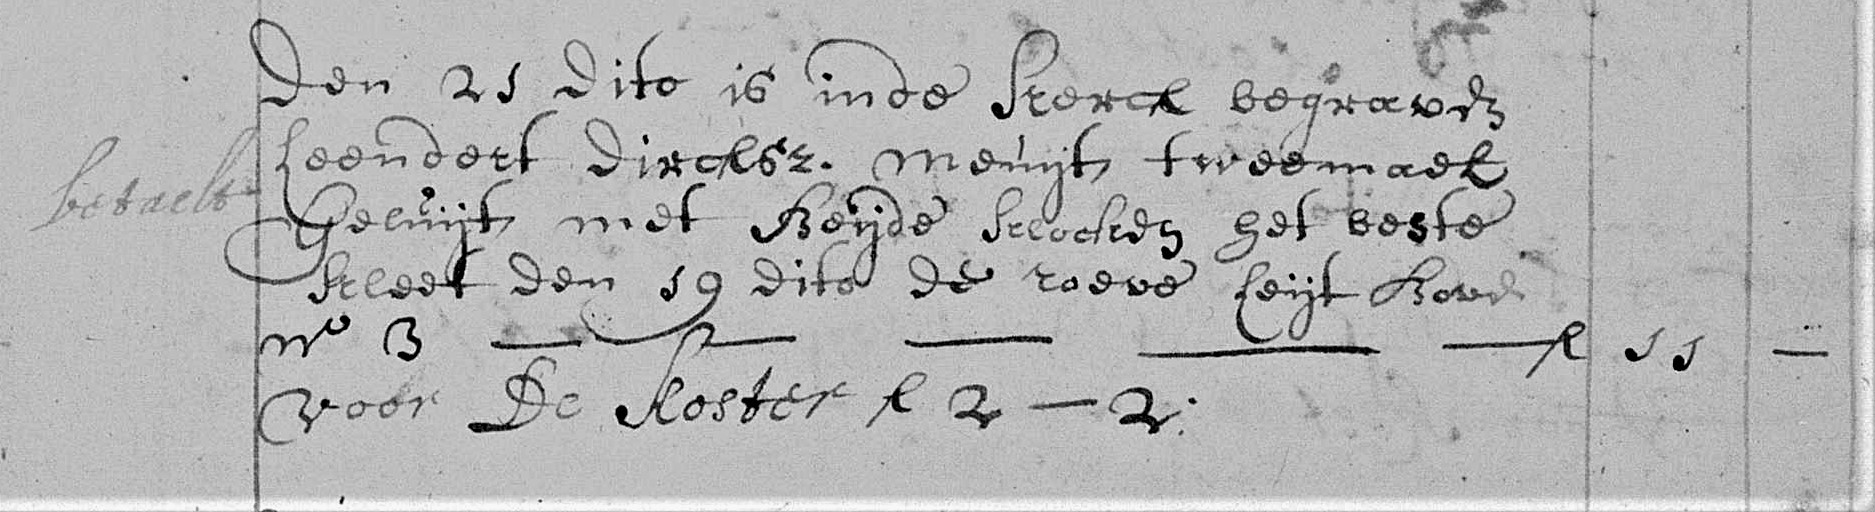 Den 21 dito is inde Kerck begraven
Leendert dircksz. meuijt tweemael
betaelt
Geluijt met Beijde klocken het beste
kleet den 19 dito de roeve leijt Bove
no 3 — — — — — f 11 —
voor De Koster f 2 — 2.